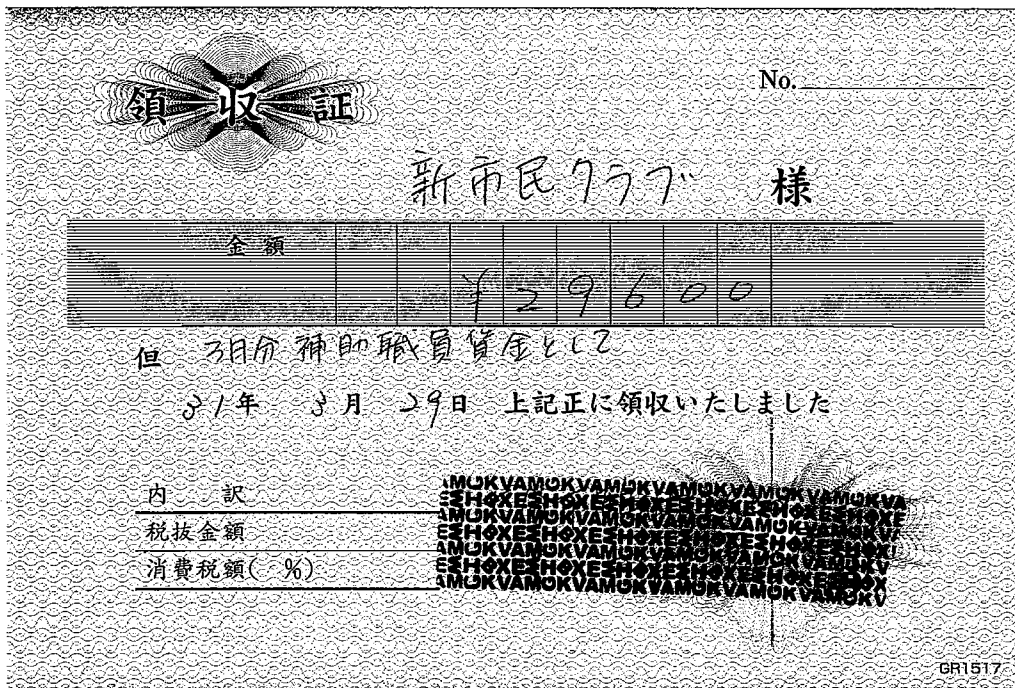 領収証
No.
新市民クラブ 様
金額
¥29600
但 3月分 補助職員賃金として
31年 3月 29日 上記正に領収いたしました
内 訳
税抜金額
消費税額( %)
GR1517